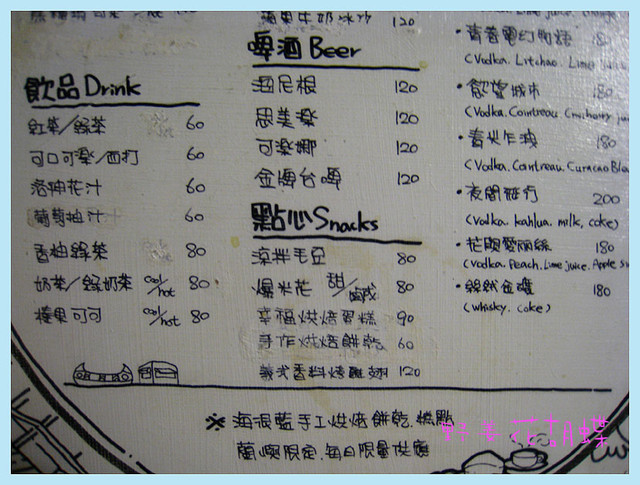 蘋果牛奶冰沙 120
飲品Drink
紅茶/綠茶 60
可口可樂/西打 60
洛神花汁 60
葡萄柚汁 60
香柚綠茶 80
奶茶/綠奶茶 cool/hot 80
榛果可可 cool/hot 80
啤酒Beer
海尼根 120
思美樂 120
可樂娜 120
金牌台啤 120
點心Snacks
涼拌毛豆 80
爆米花 甜/鹹 80
幸福烘焙蛋糕 90
手作烘焙餅乾 60
義式香料烤雞翅 120
•青春電幻物語 180
(Vodka. Litchao. Lime juice
•慾望城市 180
(Vodka. Cointreau. Cranberry jui
•青火乍現 180
(Vodka. Cointreau. Curacao Blu
•夜間飛行 200
(Vodka. kahlua. milk, coke)
•花與愛麗絲 180
(Vodka. Peach. Lime juice. Apple s
•絲絨金礦 180
(whisky. coke)
※海浪藍手工烘焙餅乾.糕點
蘭嶼限定.每日限量供應